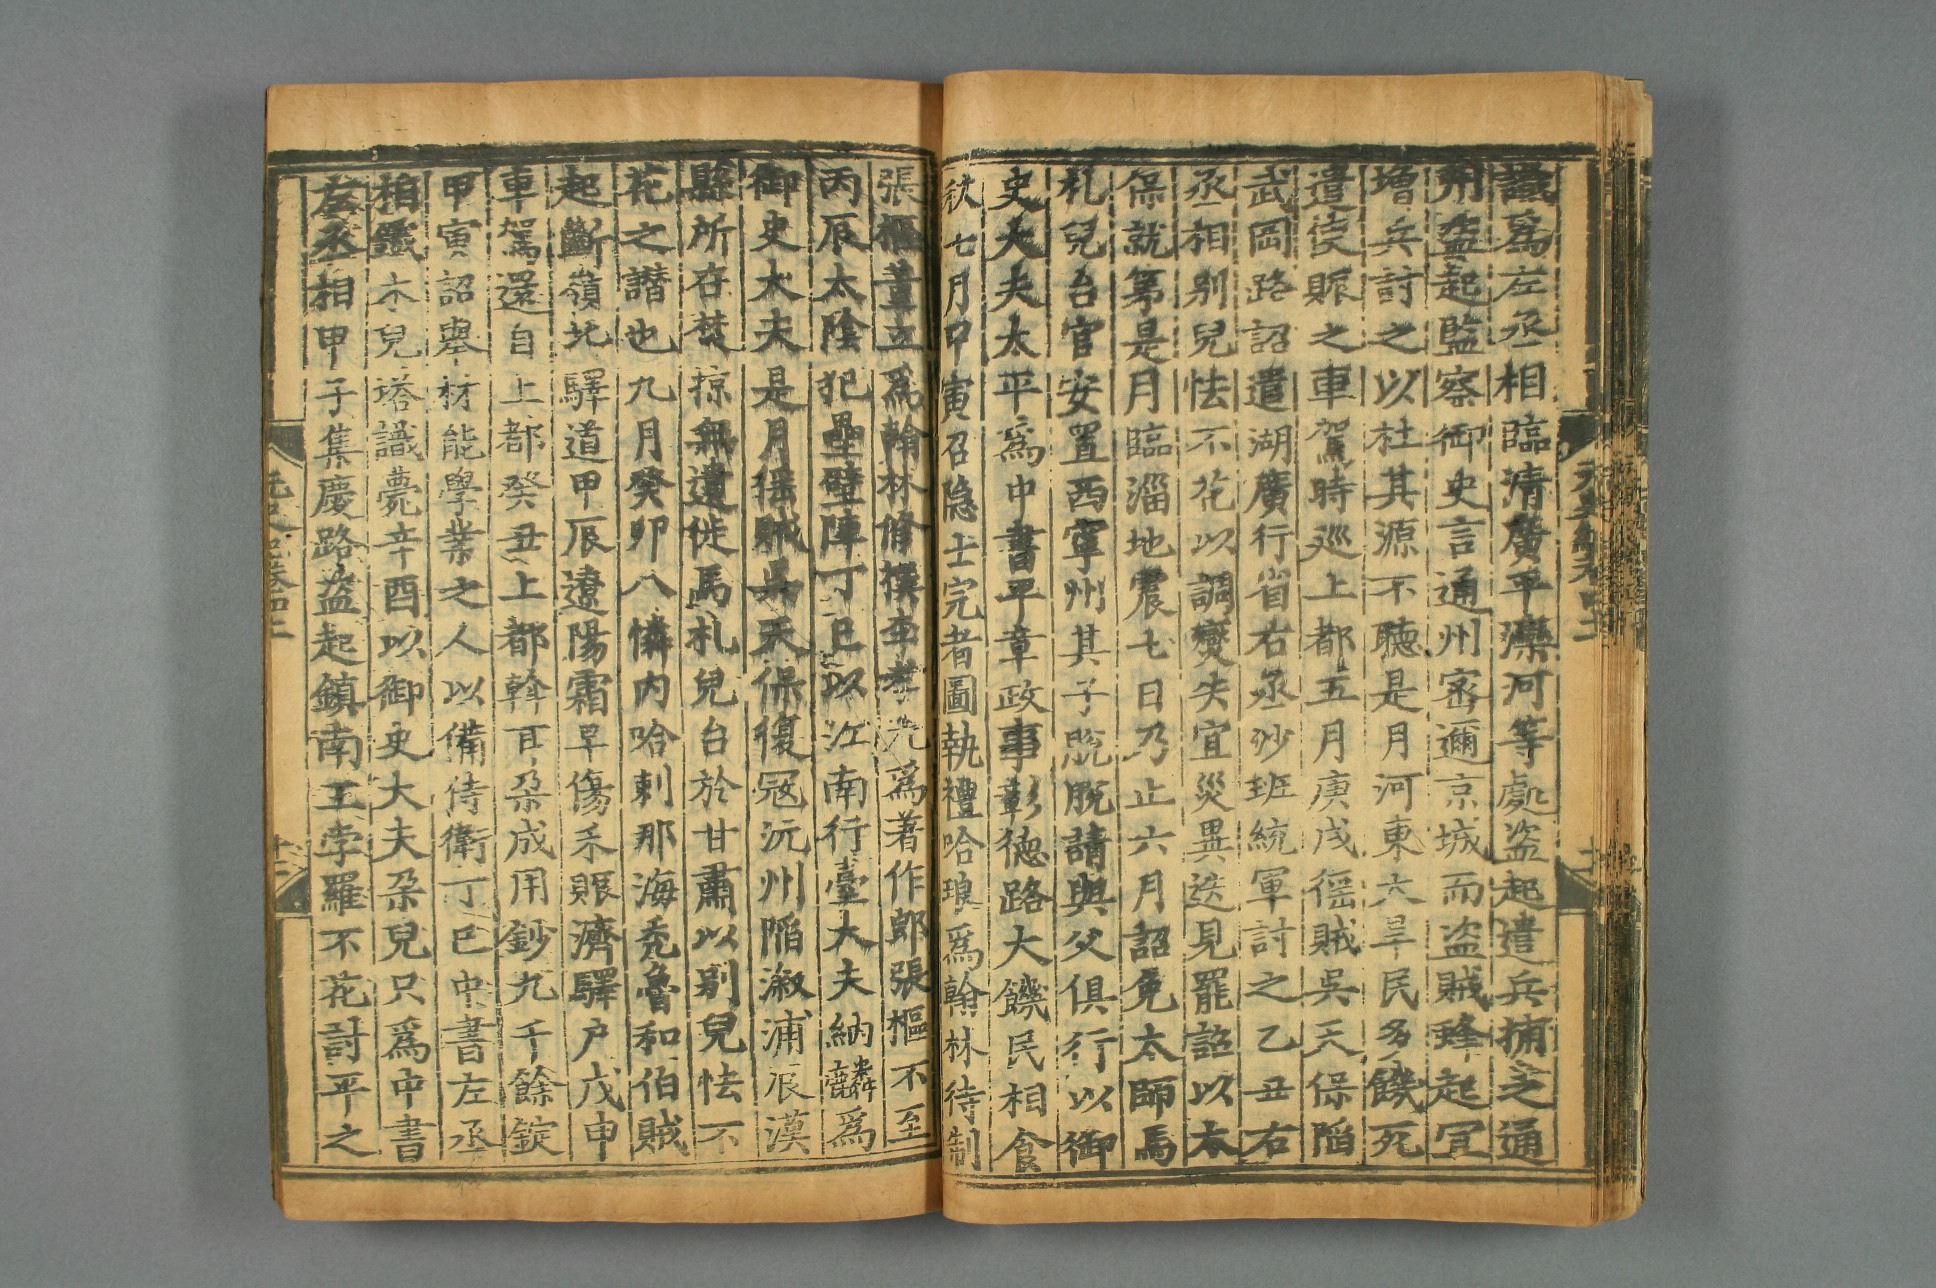 識爲左丞相臨清廣平灤河等處盗起遣兵捕之通
州盗起監察御史言通州密邇京城而盗賊蜂起宜
增兵討之以杜其源不聽是月河東大旱民多饑死
遣使賑之車駕時巡上都五月庚戌徭賊吳天保陷
武岡路詔遣湖廣行省右丞沙班統軍討之乙丑右
丞相别兒怯不花以調變失宜災異迭見罷詔以太
保就第是月臨淄地震七日乃止六月詔免太師馬
札兒台官安置西寧州其子脫脫請與父俱行以御
史大夫太平爲中書平章政事彰德路大饑民相食
秋七月甲寅召隐士完者圖執禮哈琅爲翰林待制
張樞董立爲翰林修撰李孝光爲著作郎張樞不至
丙辰太陰犯壘壁陣丁巳以江南行臺大夫納麟爲
御史大夫是月徭賊吳天保復冦沅州陷溆浦辰溪
縣所在焚掠無遺徙馬札兒台於甘肅以别兒怯不
花之譖也九月癸卯八憐内哈剌那海禿魯和伯賊
起斷嶺北驛道甲辰遼陽霜早傷禾賑濟驛户戊申
車駕還自上都癸丑上都斡耳朶成用鈔九千餘錠
甲寅詔舉材能學業之人以備侍衛丁巳中書左丞
相鐵木兒塔識薨辛酉以御史大夫朶兒只爲中書
左丞相甲子集慶路盗起鎮南王孛羅不花討平之